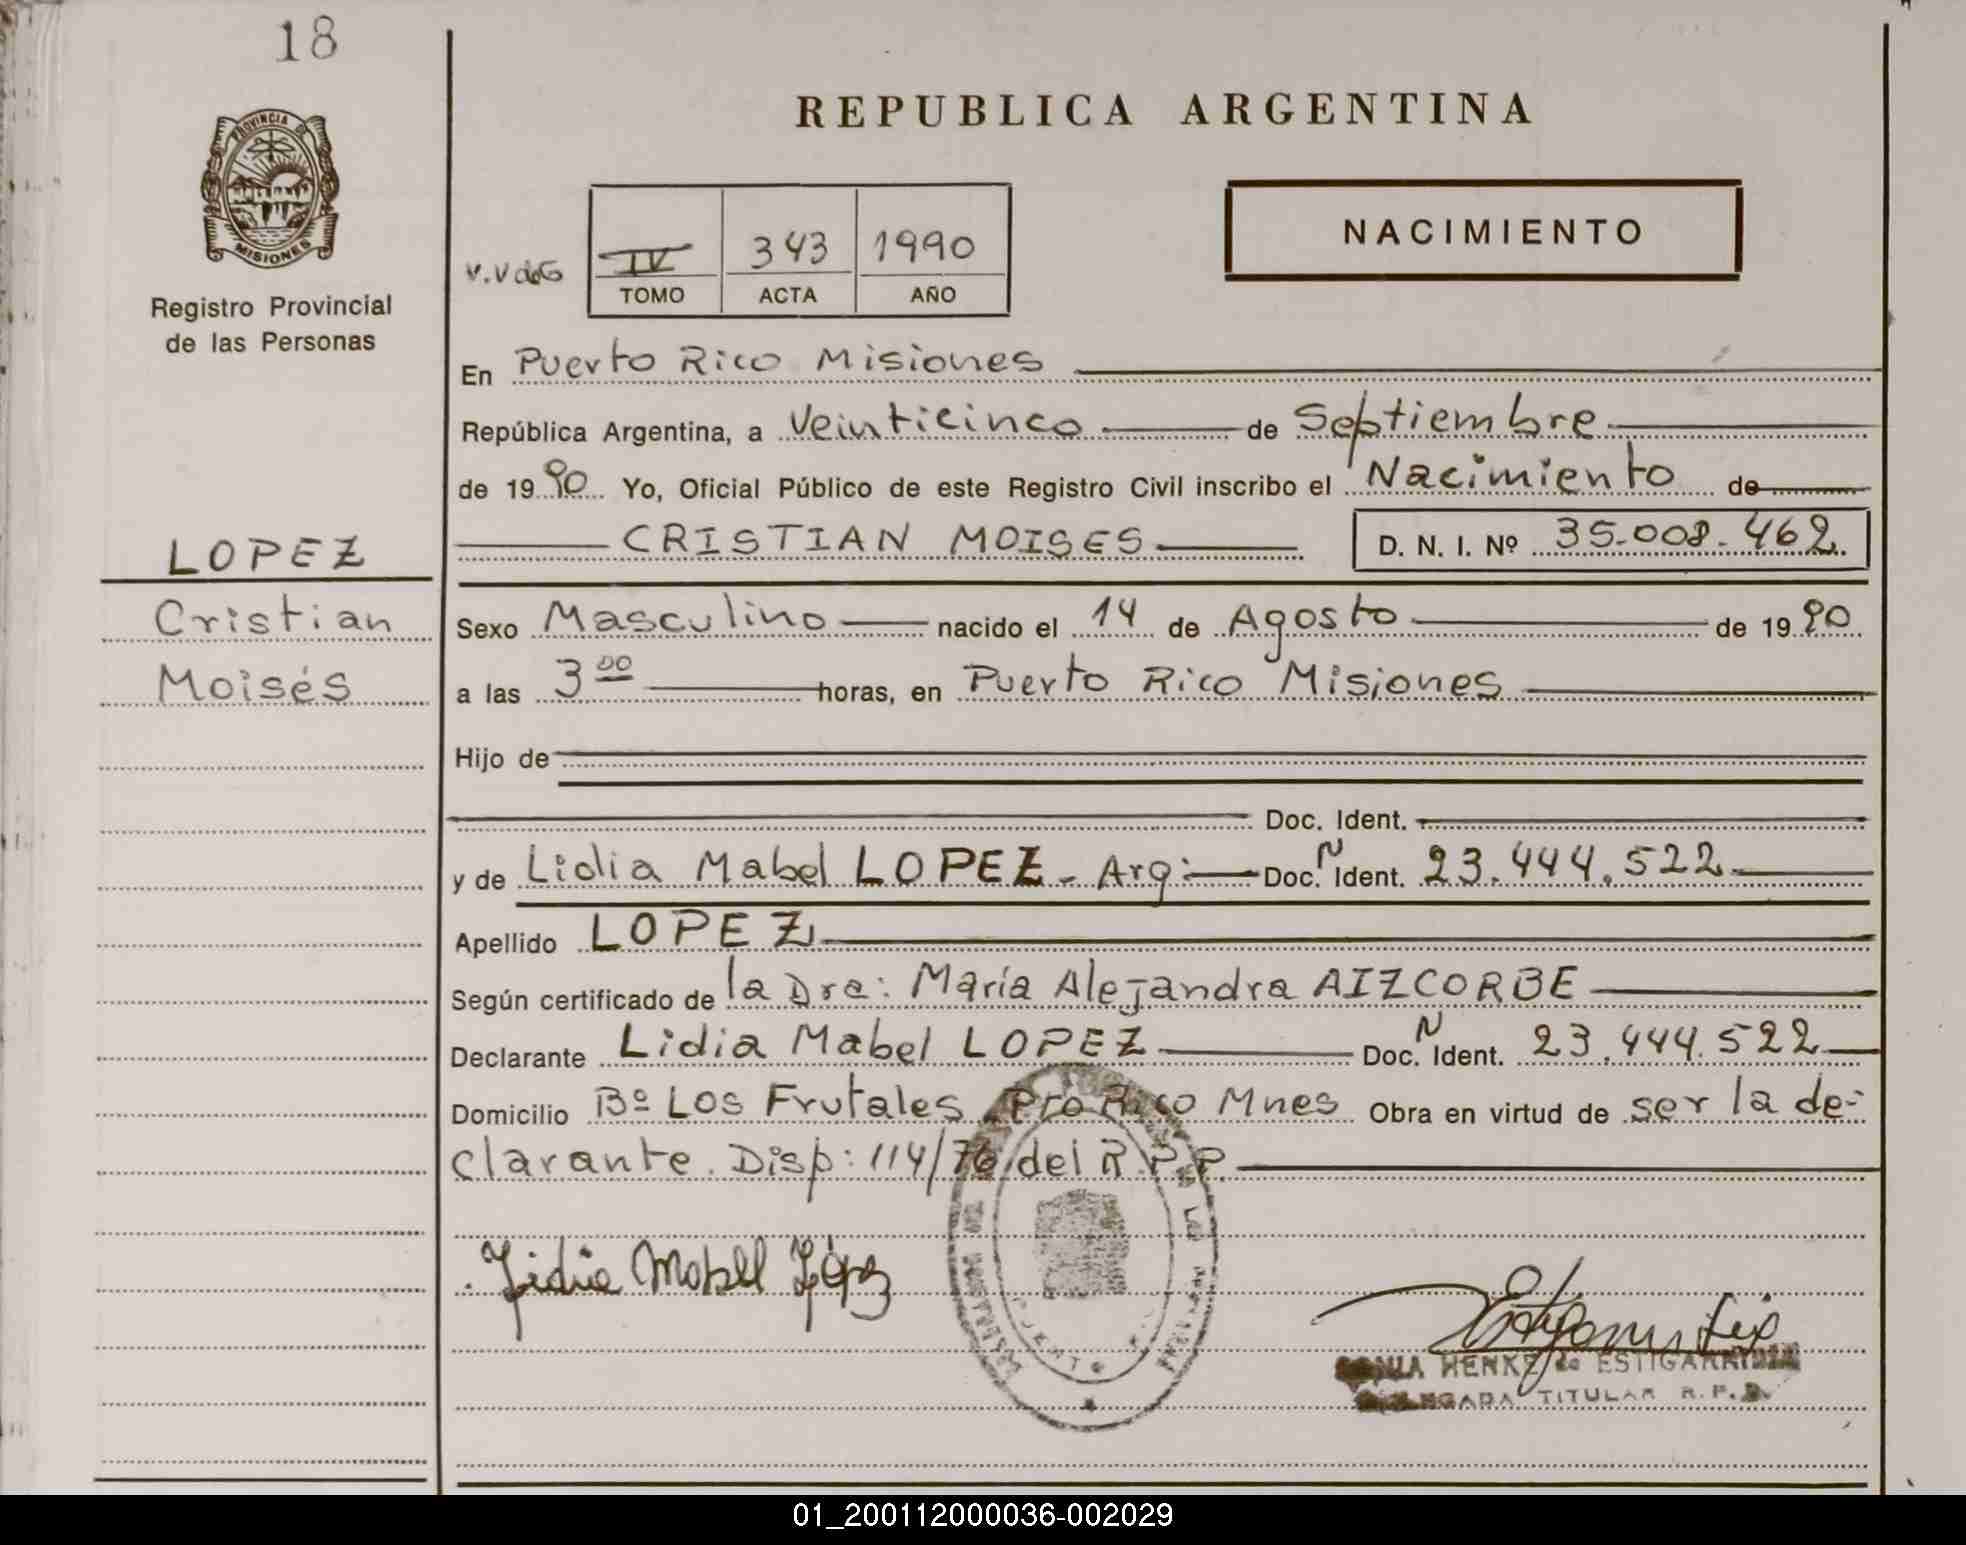 18
PROVINCIA DE
MISIONES
Registro Provincial
de las Personas
LOPEZ
Cristian
Moisés
REPUBLICA ARGENTINA
NACIMIENTO
IV 343 1990
TOMO ACTA AÑO
En Puerto Rico Misiones
República Argentina, a Veinticinco de Septiembre
de 1990 Yo, Oficial Público de este Registro Civil inscribo el Nacimiento de
CRISTIAN MOISES D. N. I. Nº 35.008.462
Sexo Masculino nacido el 14 de Agosto de 1990
a las 3 00 horas, en Puerto Rico Misiones
Hijo de
Doc. Ident.
y de Lidia Mabel LOPEZ - Arg: Doc. N Ident. 23.444.522
Apellido LOPEZ
Según certificado de la Dra: María Alejandra AIZCORBE
Declarante Lidia Mabel LOPEZ Doc. N Ident. 23.444.522
Domicilio Bº Los Frutales Pto Rico Mnes Obra en virtud de ser la de-
clarante. Disp: 114/76 del R.P.P.
Lidia Mabel López
SONIA HENKE de ESTIGARRIBIA
DELEGADA TITULAR R. P. P.
01_200112000036-002029